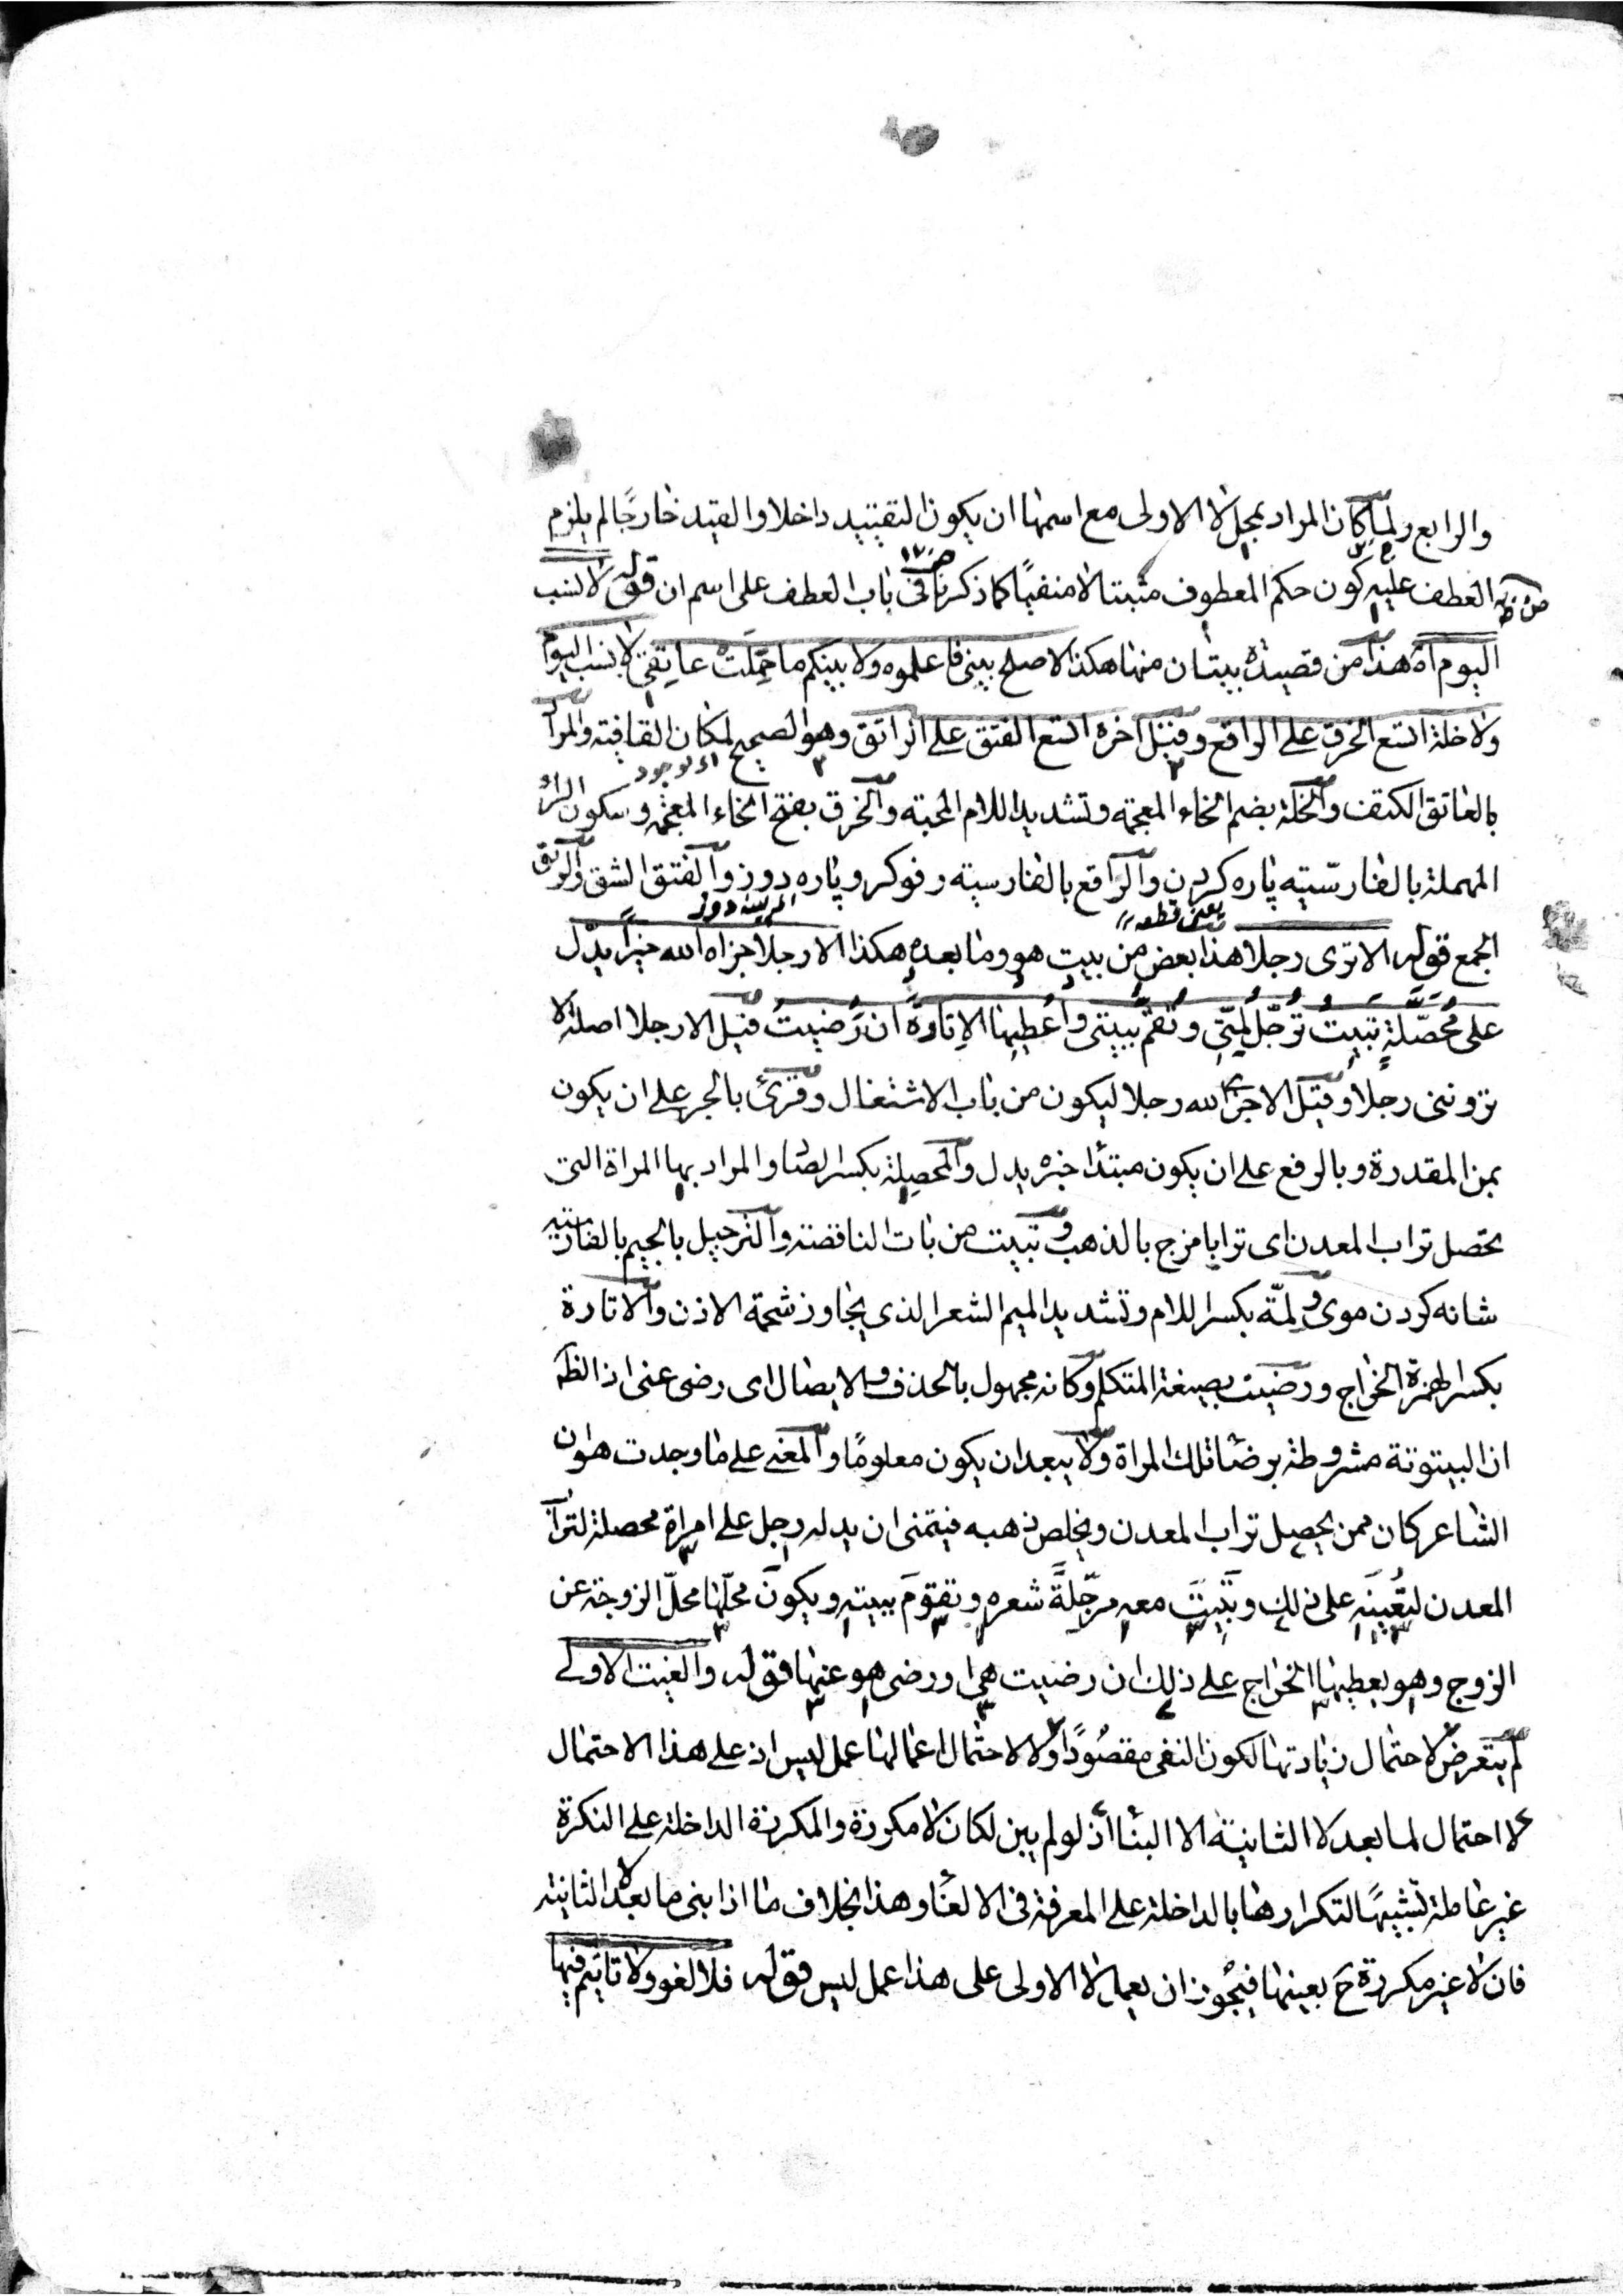 والرابع ولما كان المراد بمحل لا الاولى مع اسمها ان يكون التقييد داخلا والقيد خارجًا لم يلزم
العطف عليه كون حكم المعطوف مثبتا لا منفيًا كما ذكرنا فى باب العطف على اسم ان قوله لا نسب
اليوم اه هذا من قصيدة بيتان منها هكذا لا صلح بينى فاعلموه ولا بينكم ما حَمَلَتْ عاتِقِي لا نسب اليوم
ولا خلة اتسع الخرق على الراقع وقيل اخره اتسع الفتق على الراتق وهو الصحيح لمكان القافية والمراد
بالعاتق الكتف والخلة بضم الخاء المعجمة وتشديد اللام المحبة والخرق بفتح الخاء المعجمة وسكون الراء
المهملة بالفارسيّة پاره كردن والرّاقع بالفارسية رفوكر و پاره دوز والفتق الشق والرتق
يعنى قطعه
الجمع قوله الا ترى رجلا هذا بعض من بيت هو وما بعده هكذا الا رجلا جزاه الله خيرًا يدل
على مُحَصِّلَةٍ تبيتُ تُرَجِّل لِمَّتِي وتَقُمُّ بيتى واُعْطِيها الاِتاوَةَ ان رَضيتُ قيل الا رجلا اصله الا
تروننى رجلا وقيل الا جزى الله رجلا ليكون من باب الاشتغال وقرئ بالجر على ان يكون
بمن المقدرة وبالرفع على ان يكون مبتدأ خبره يدل والمحصلة بكسر الصاد والمراد بها المراة التى
تحصل تراب المعدن اى ترابا مزج بالذهب وتبيت من بات الناقصة والترجيل بالجيم بالفارسية
شانه كردن موى ولِمّة بكسر اللام وتشديد الميم الشعر الذى يجاوز شحمة الاذن والاتاوة
بكسر الهمزة الخراج ورضيت بصيغة المتكلم وكانه مجهول بالحذف والايصال اى رضى عنى اذ الظ
ان البيتوتة مشروطة برضا تلك المراة ولا يبعد ان يكون معلومًا والمعنى على ما وجدت هو ان
الشاعر كان ممن يحصل تراب المعدن ويخلص ذهبه فيتمنى ان يدله رجل على امراة محصلة لتراب
المعدن لتُعِينَه على ذلك وتَبِيتَ معه مرجّلةً شعره وتقومَ ببيته ويكونَ محلّها محلّ الزوجة عن
الزوج وهو يعطيها الخراج على ذلك ان رضيت هى او رضى هو عنها قوله والغيت الاولى
لم يتعرض لاحتمال زيادتها لكون النفى مقصودًا ولا لاحتمال اعمالها عمل ليس اذ على هذا الاحتمال
لا احتمال لما بعد لا الثانية الا البنأ اذ لو لم يبن لكان لا مكررة والمكررة الداخلة على النكرة
غير عاملة تشبيهًا لتكرارها بالداخلة على المعرفة فى الالغأ وهذا بخلاف ما اذا بنى ما بعد لا الثانية
فان لا غير مكررة ح بعينها فيجوز ان يعمل لا الاولى على هذا عمل ليس قوله فلا لغو ولا تاثيم فيها